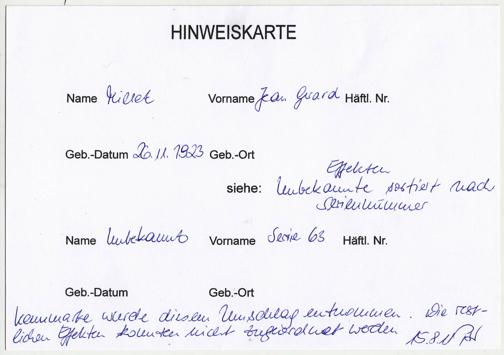 HINWEISKARTE
Name Millet Vorname Jean Gerard Häftl. Nr.
Geb.-Datum 26.11.1923 Geb.-Ort
Effekten
siehe: Unbekannte sortiert nach
Seriennummer
Name Unbekannt Vorname Serie 63 Häftl. Nr.
Geb.-Datum Geb.-Ort
wurde diesem Umschlag entnommen. Die rest-
lichen Effekten konnten nicht zugeordnet werden 15.8.11